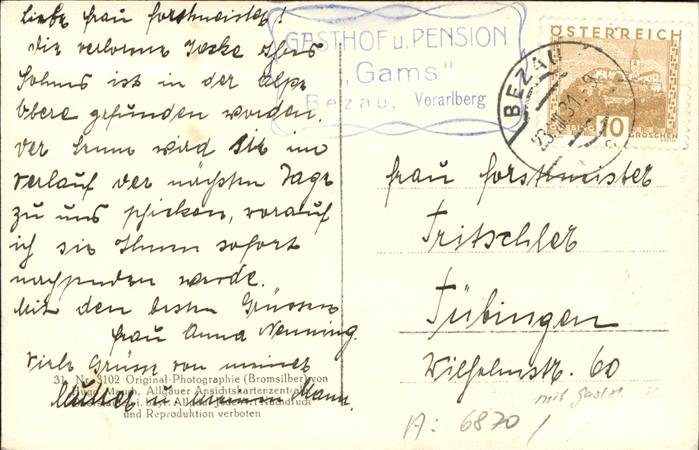 Liebe Frau Forstmeister!
Die verlorene Jacke Ihres
Sohnes ist in der Alpe
Obere gefunden worden.
Der Senn wird sie im
Verlauf der nächsten Tage
zu uns schicken, worauf
ich sie Ihnen sofort
nachsenden werde.
Mit den besten Grüssen
Frau Anna Nenning.
Viele Grüsse von meiner
Mutter u. Mann.
31. Nr. 3102 Original-Photographie (Bromsilber) von
Hugo Mauch, Allgäuer Ansichtskartenzentrale
und Reproduktion verboten
GASTHOF u. PENSION
„Gams“
Bezau, Vorarlberg
ÖSTERREICH
10
GROSCHEN
BEZAU
23.VIII.31
Frau Forstmeister
Fritschler
Tübingen
Wilhelmstr. 60
A: 6870